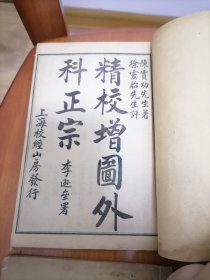 陳實功先生著
徐靈胎先生評
精校增圖外
科正宗
李迎奎署
上海校經山房發行